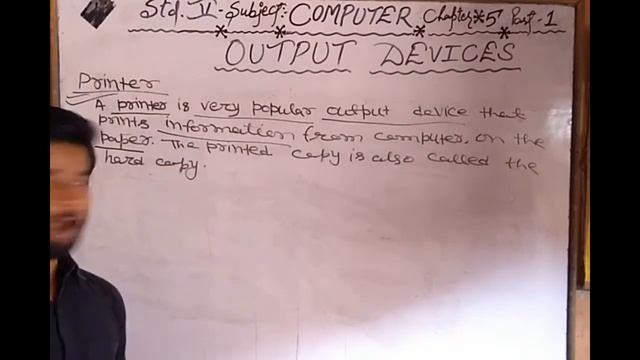 Std. V - Subject:- COMPUTER Chapter*5 Part-1
OUTPUT DEVICES
Printer
A printer is very popular output device that
prints information from computer, on the
paper. The printed copy is also called the
hard copy.